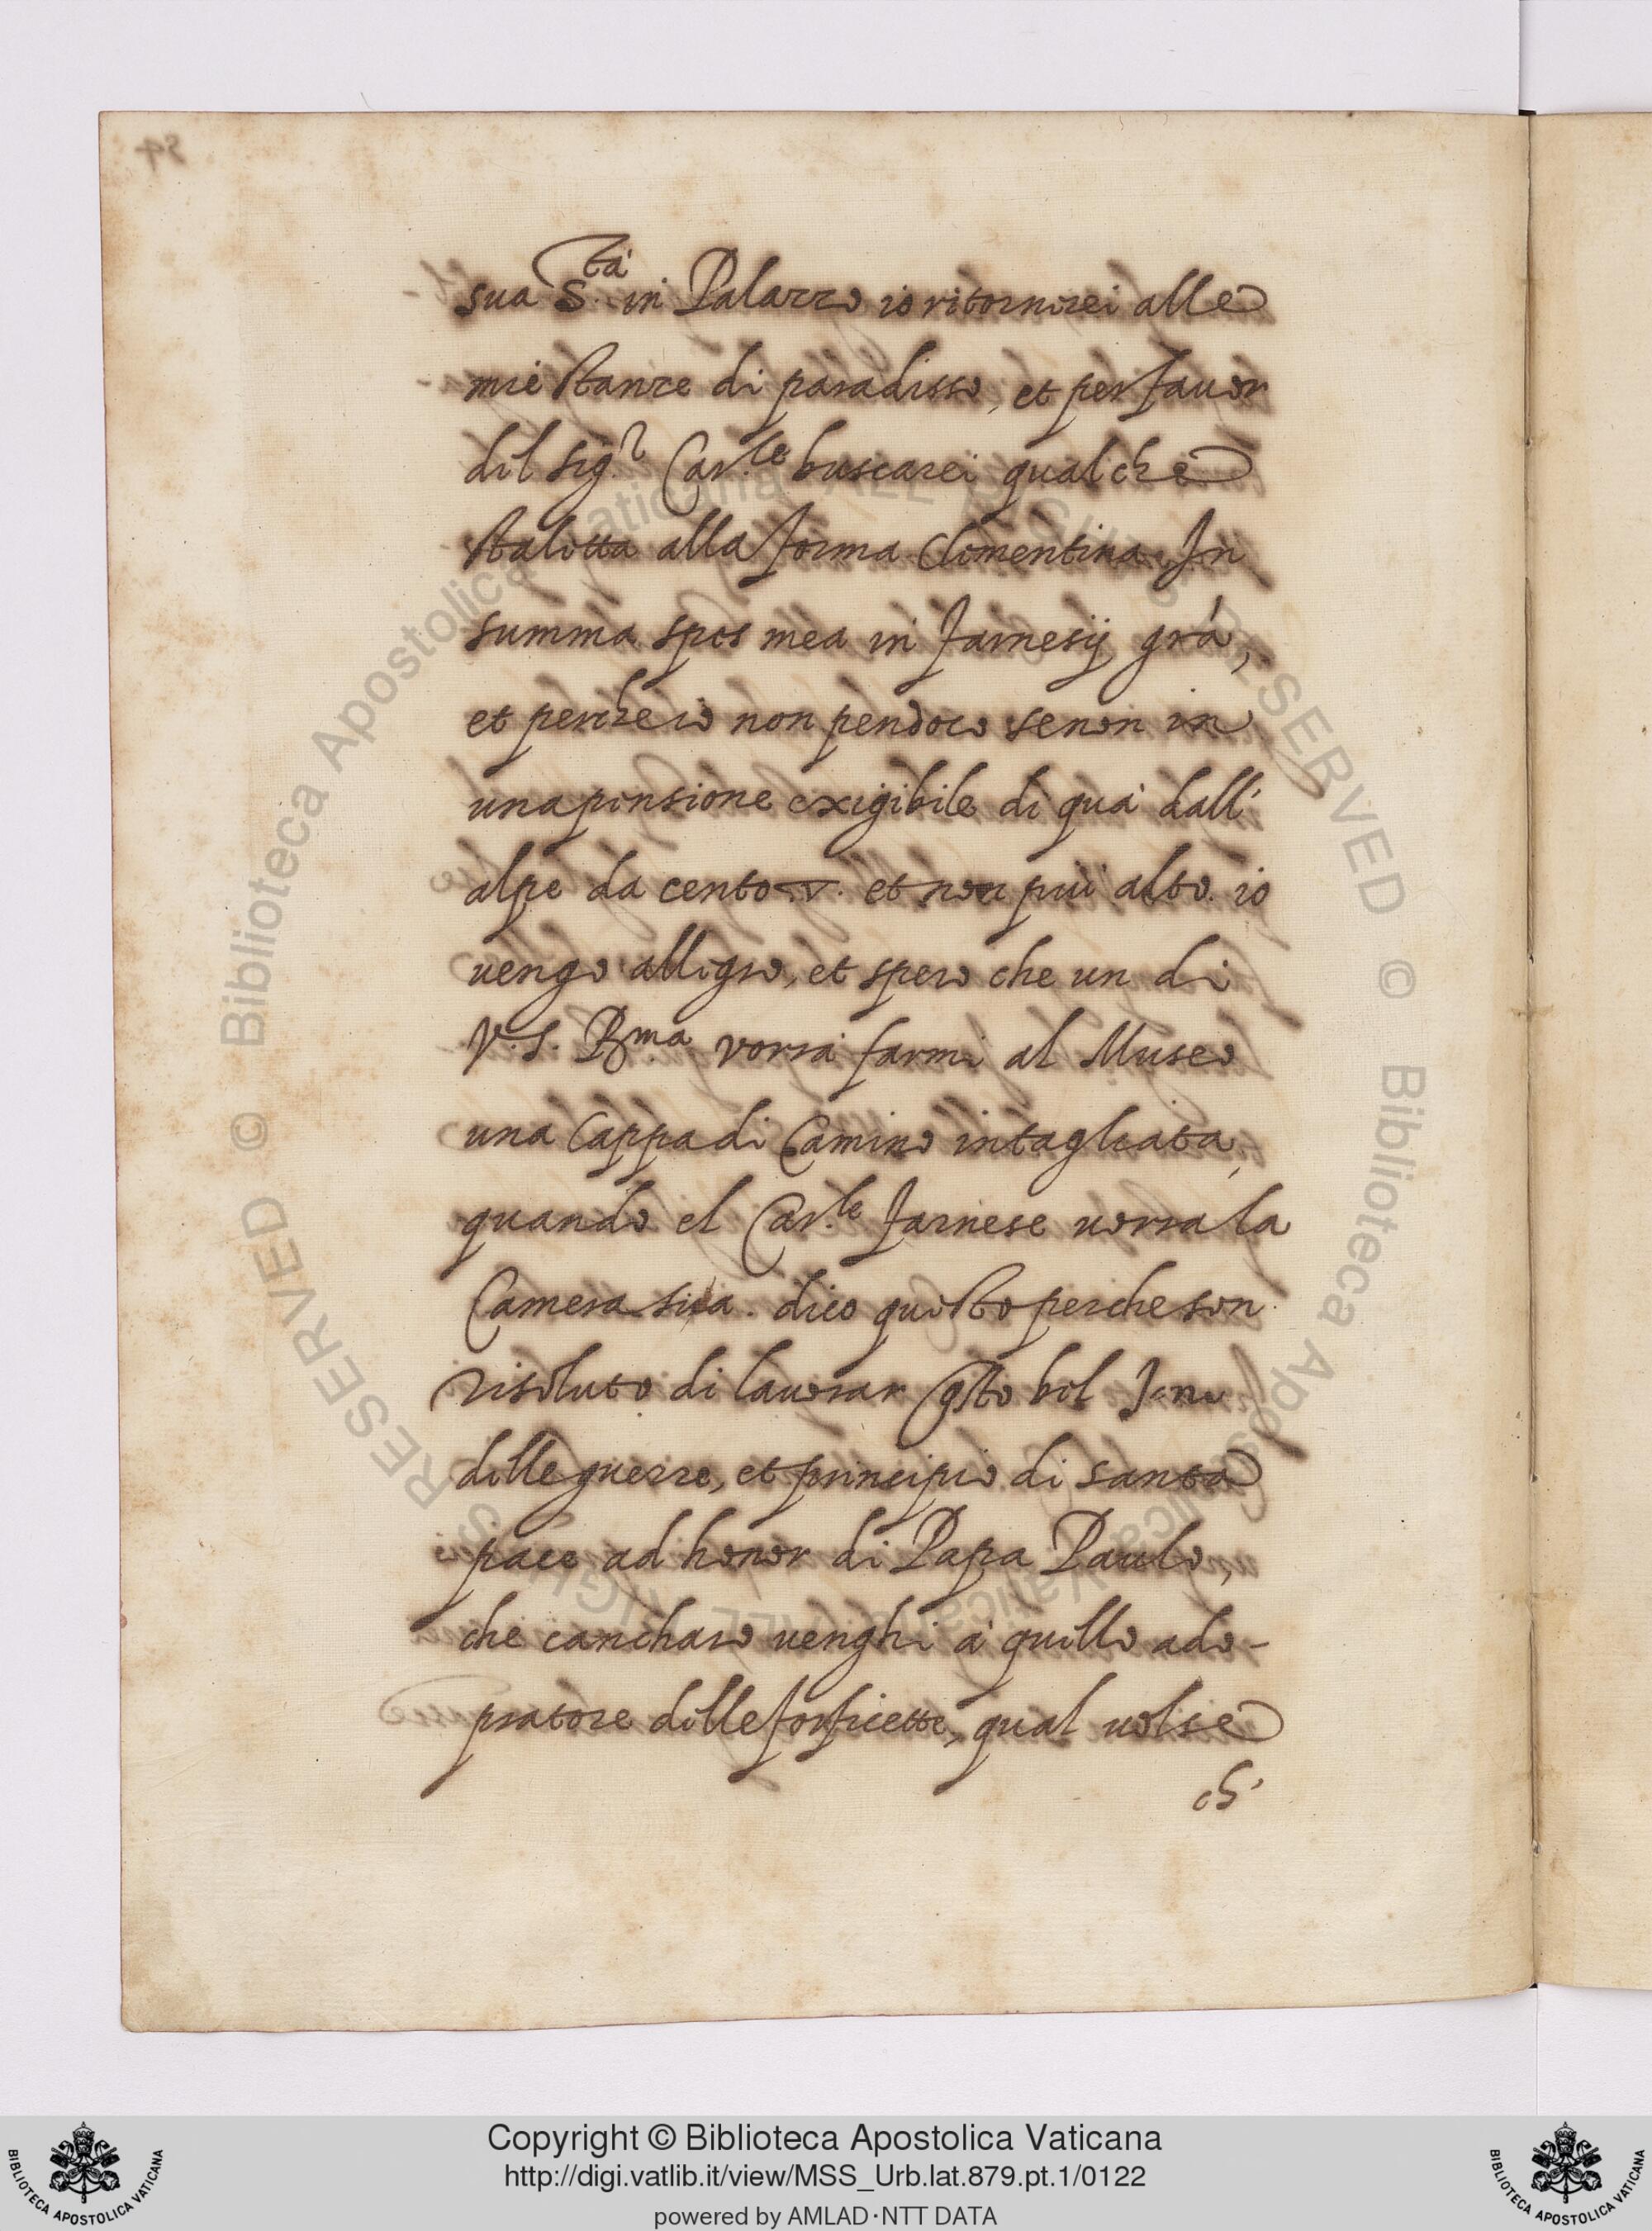 sua S.tà in Palazzo io ritornirei alle
mie stanze di paradisso, et per favor
dil sig.r Car.le buscarei qualche
stalitta alla forma Climentina. In
summa spes mea in Farnesij grà,
et perche io non pendoco senon in
una pensione exigibile di quà dall'
alpe da cento et non più alto. io
vengo alligro, et spero che un di
V. S. R.ma vorrà farmi al Museo
una Cappa di Camino intagliata,
quando el Car.le Farnese vorra la
Camera sua. dico questo perche son
risoluto di lavorar qsto bel
dille guerre, et principio di santa
pace ad honor di Papa Paulo,
che cancharo venghi à quillo ado-
pratore dille forficette, qual volse
ch'
54
© Biblioteca Apostolica Vaticana ALL RIGHTS RESERVED © Biblioteca Apostolica Vaticana ALL RIGHTS RESERVED
Copyright © Biblioteca Apostolica Vaticana
http://digi.vatlib.it/view/MSS_Urb.lat.879.pt.1/0122
powered by AMLAD·NTT DATA
BIBLIOTECA APOSTOLICA VATICANA
BIBLIOTECA APOSTOLICA VATICANA